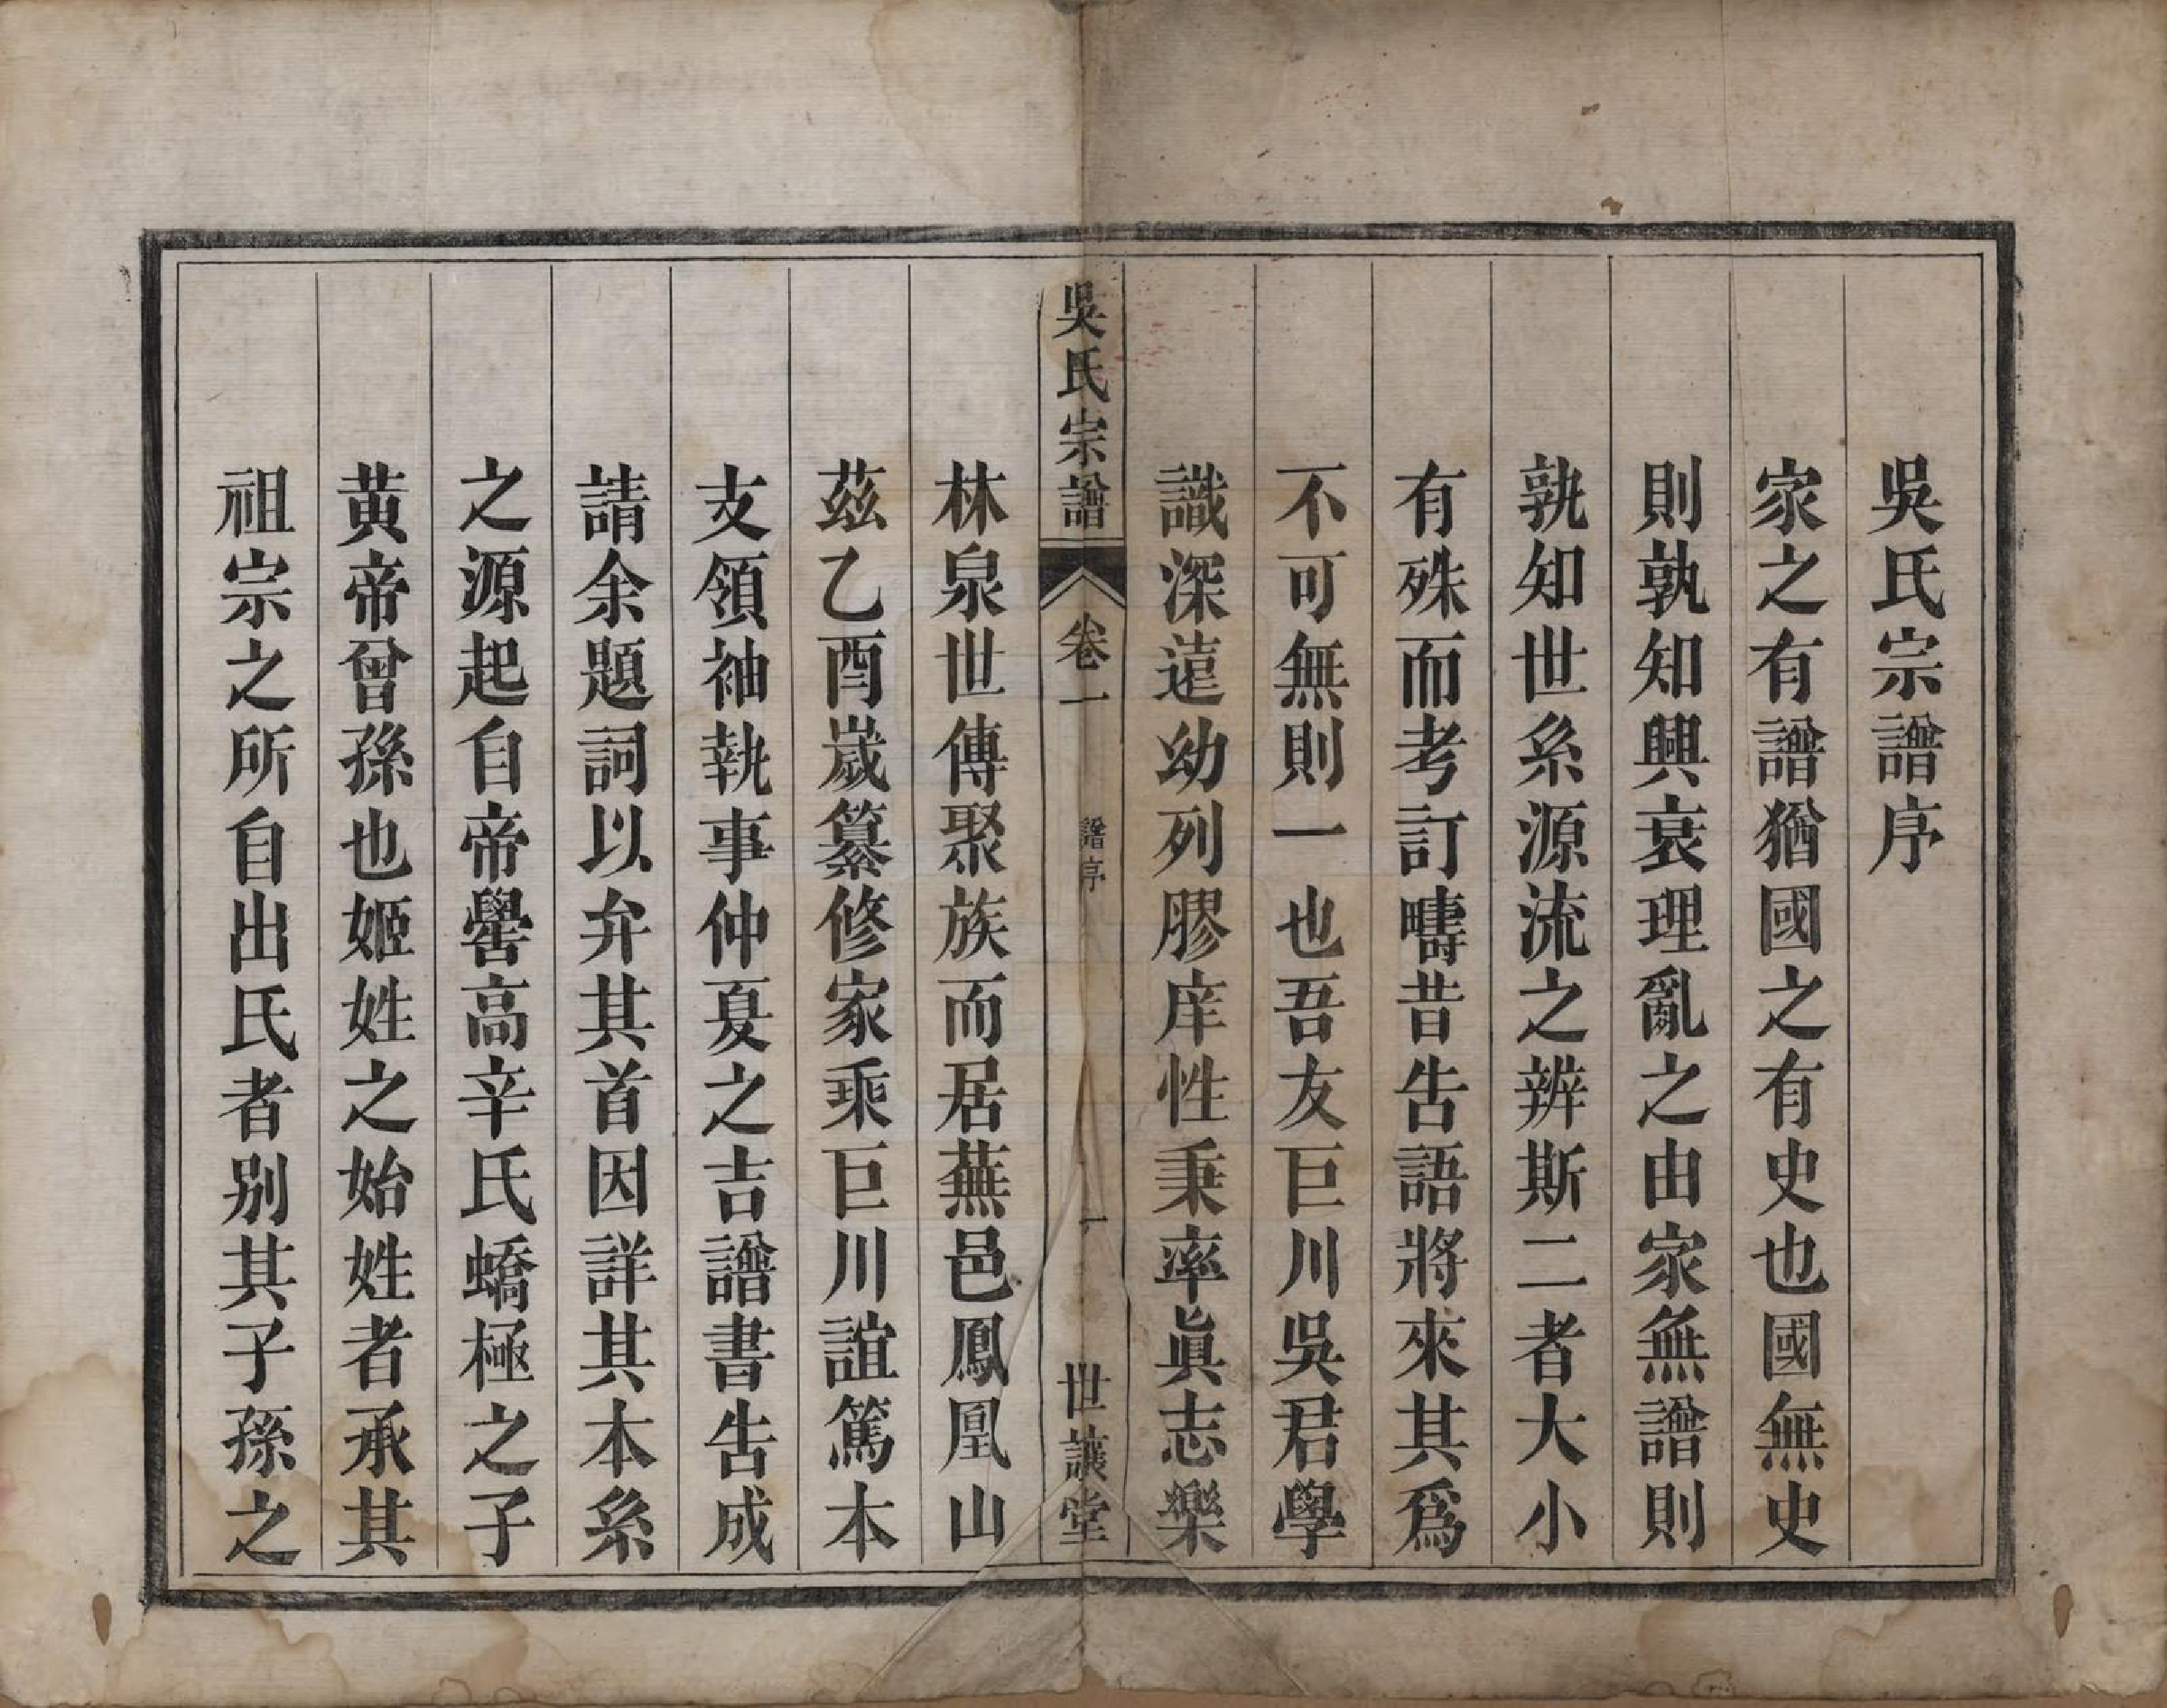 吳氏宗譜序
家之有譜猶國之有史也國無史
則孰知興衰理亂之由家無譜則
孰知世系源流之辨斯二者大小
有殊而考訂疇昔告語將來其爲
不可無則一也吾友巨川吳君學
識深遠幼列膠庠性秉率眞志樂
吳氏宗譜
卷一
譜序
一
世讓堂
林泉世傳聚族而居蕪邑鳳凰山
茲乙酉嵗纂修家乘巨川誼篤本
支領袖執事仲夏之吉譜書告成
請余題詞以弁其首因詳其本系
之源起自帝嚳高辛氏蟜極之子
黃帝曾孫也姬姓之始姓者承其
祖宗之所自出氏者別其子孫之